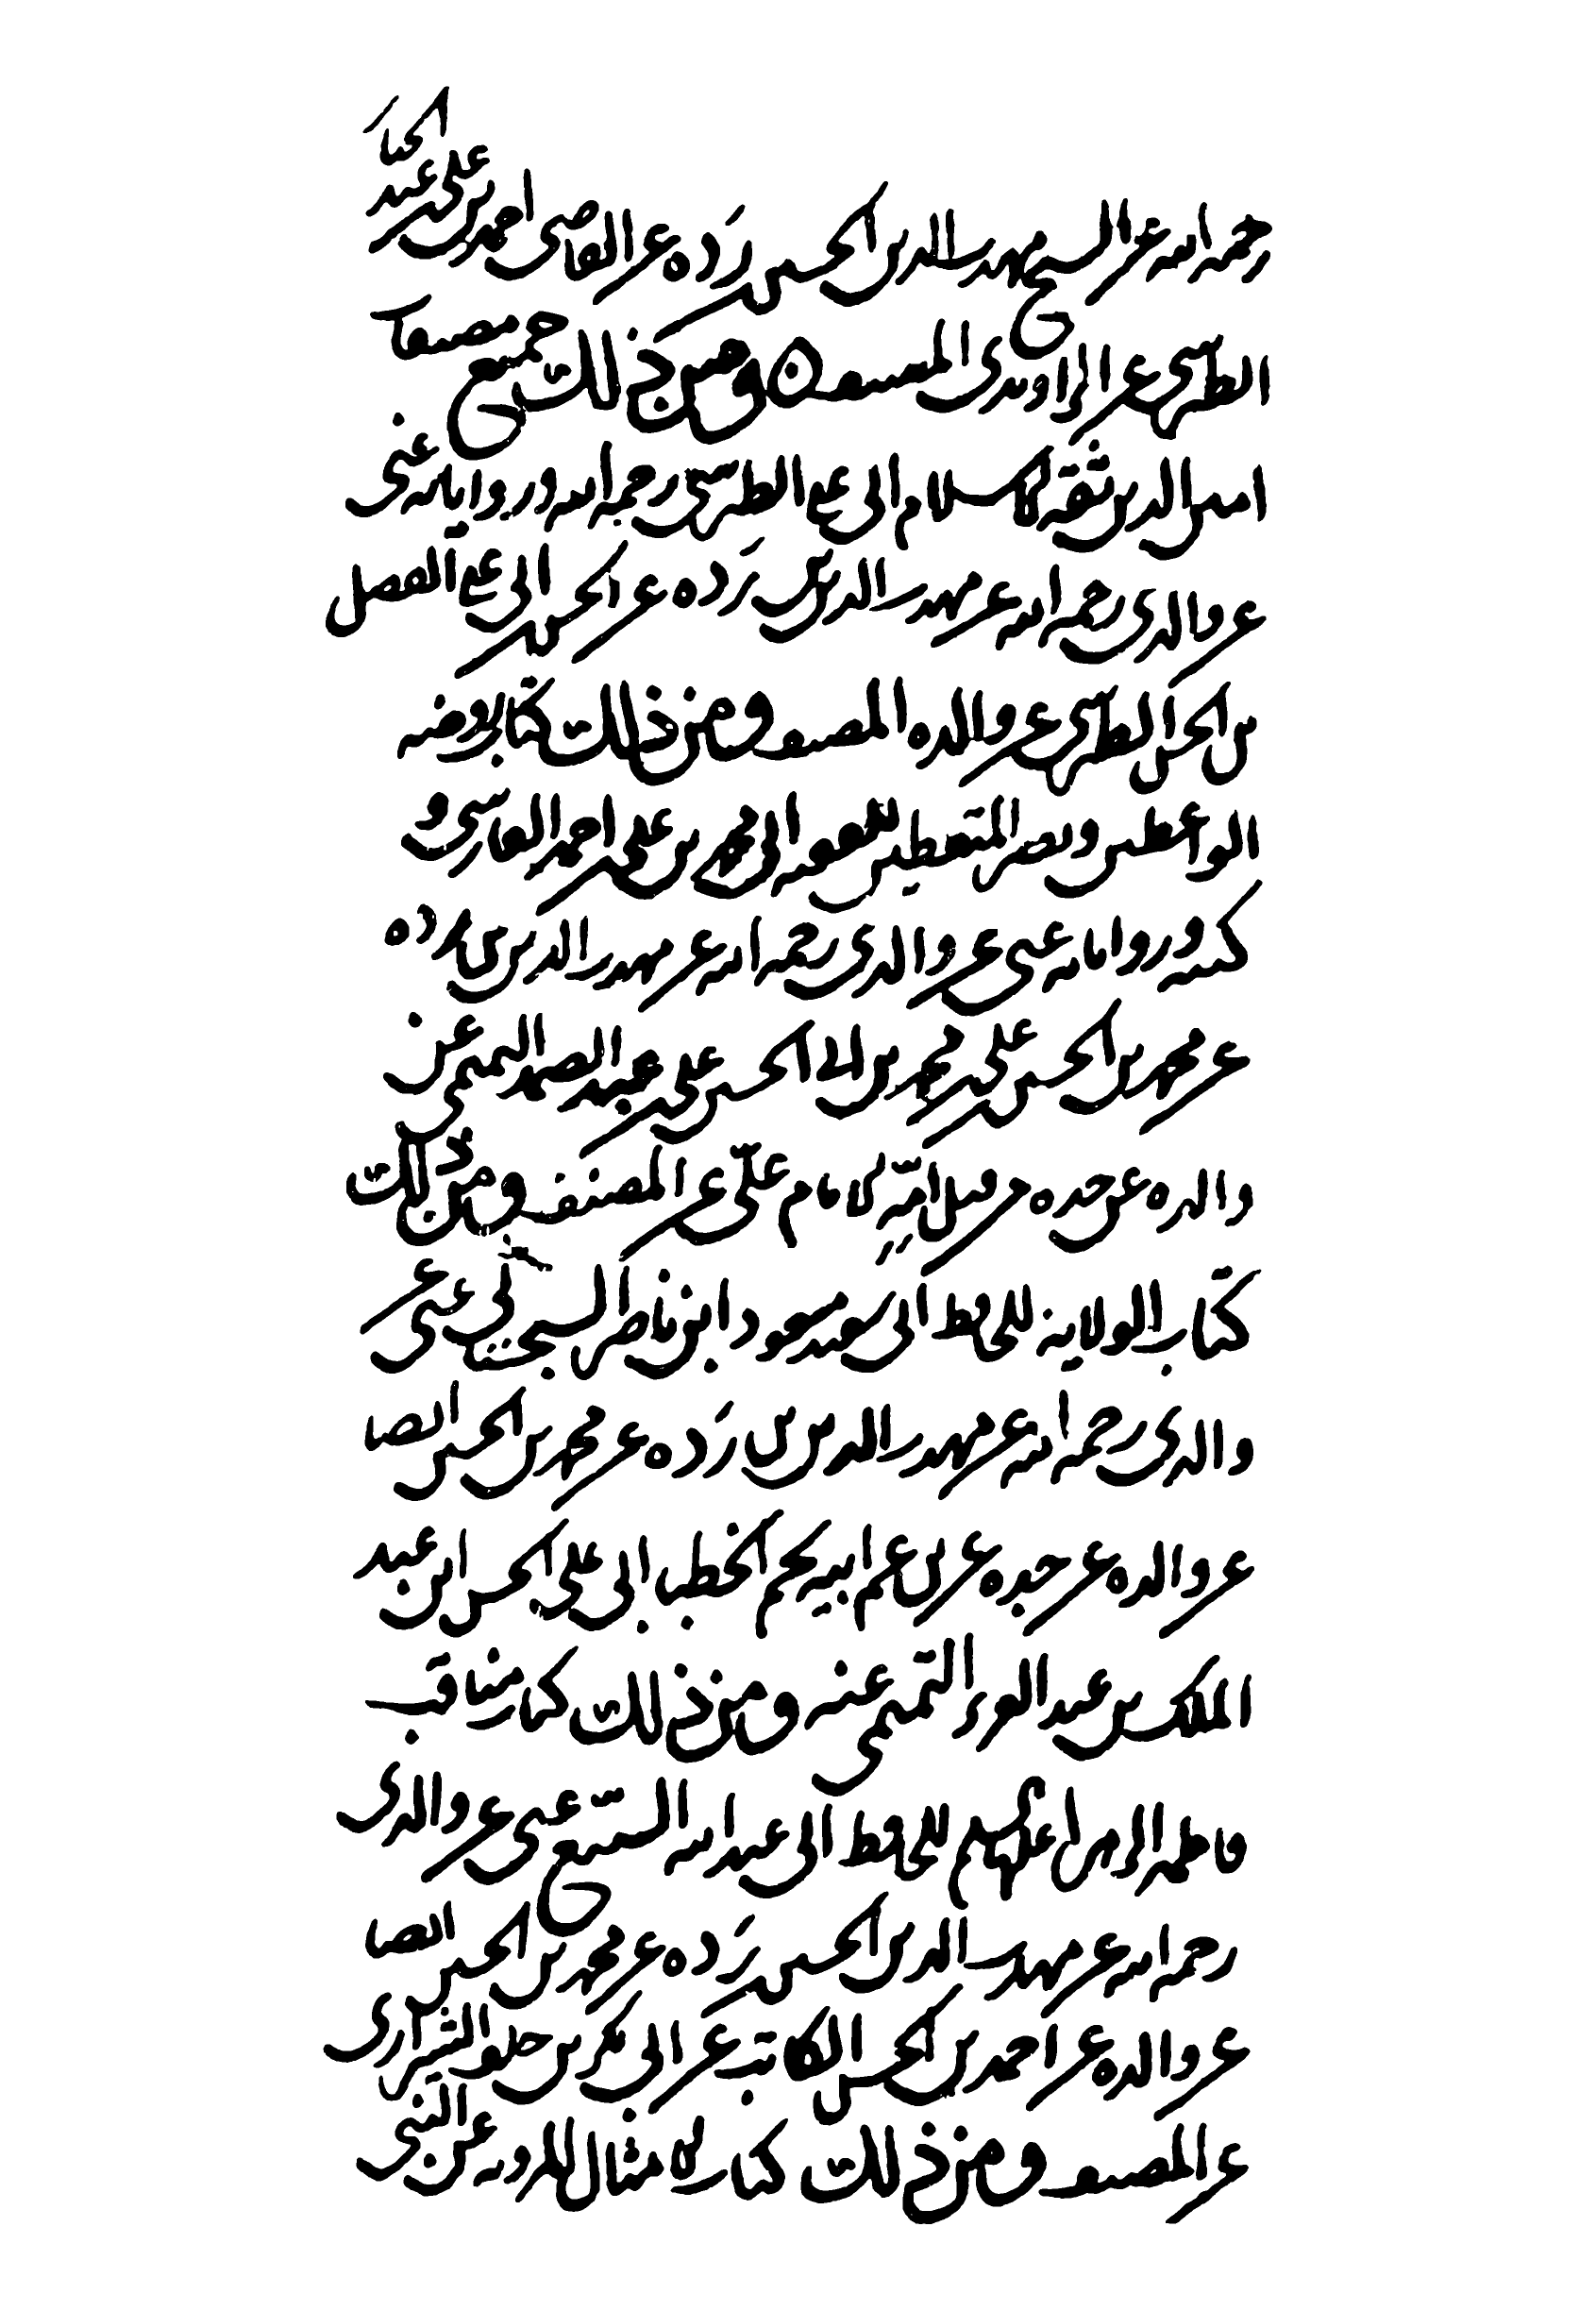 رحمه الله عن الشيخ مهذب الدين الحسين بن رده عن القاضي احمد بن علي بن عبد الجبار
الطبرسي عن الراوندي المصنف ومن ذلك جميع تصنيفات
امين الدين ثقة الاسلام ابي علي الطبرسي رحمه الله ورواياته عني
عن والدي رحمه الله عن مهذب الدين بن رده عن الحسن بن ابي علي الفضل
بن الحسن الطبرسي عن والده المصنف ومن ذلك كتاب روضه
الواعظين وبصيره المتعظين للفقيه ابي محمد بن علي بن احمد الفارسي و
كتبه ورواياته عني عن والدي رحمه الله عن مهذب الدين بن رده
عن محمد بن الحسين بن علي بن محمد بن ابي الحسين علي بن عبد الصمد التميمي عن
والده عن جده من قبل امه الامام علي عن المصنف ومن ذلك
كتاب الولاية للحافظ ابي سعيد مسعود ابن ناصر السجستاني عني عن
والدي رحمه الله عن مهذب الدين بن رده عن محمد بن الحسين ايضا
عن والده عن جده عن ابن عم ابيه يحيى الخطيب ابي علي الحسن ابن عبد
الملك بن عبد العزيز التميمي عنه ومن ذلك كتاب مناقب
فاطمه الزهراء عليها السلم للحافظ ابي عبد الله البيع عني عن والدي
رحمه الله عن مهذب الدين الحسين بن رده عن محمد بن الحسين ايضا
عن والده عن احمد بن الحسن الكاتب عن ابي بكر بن خلف الشيرازي
عن المصنف ومن ذلك كتاب الامثال المرويه عن النبي